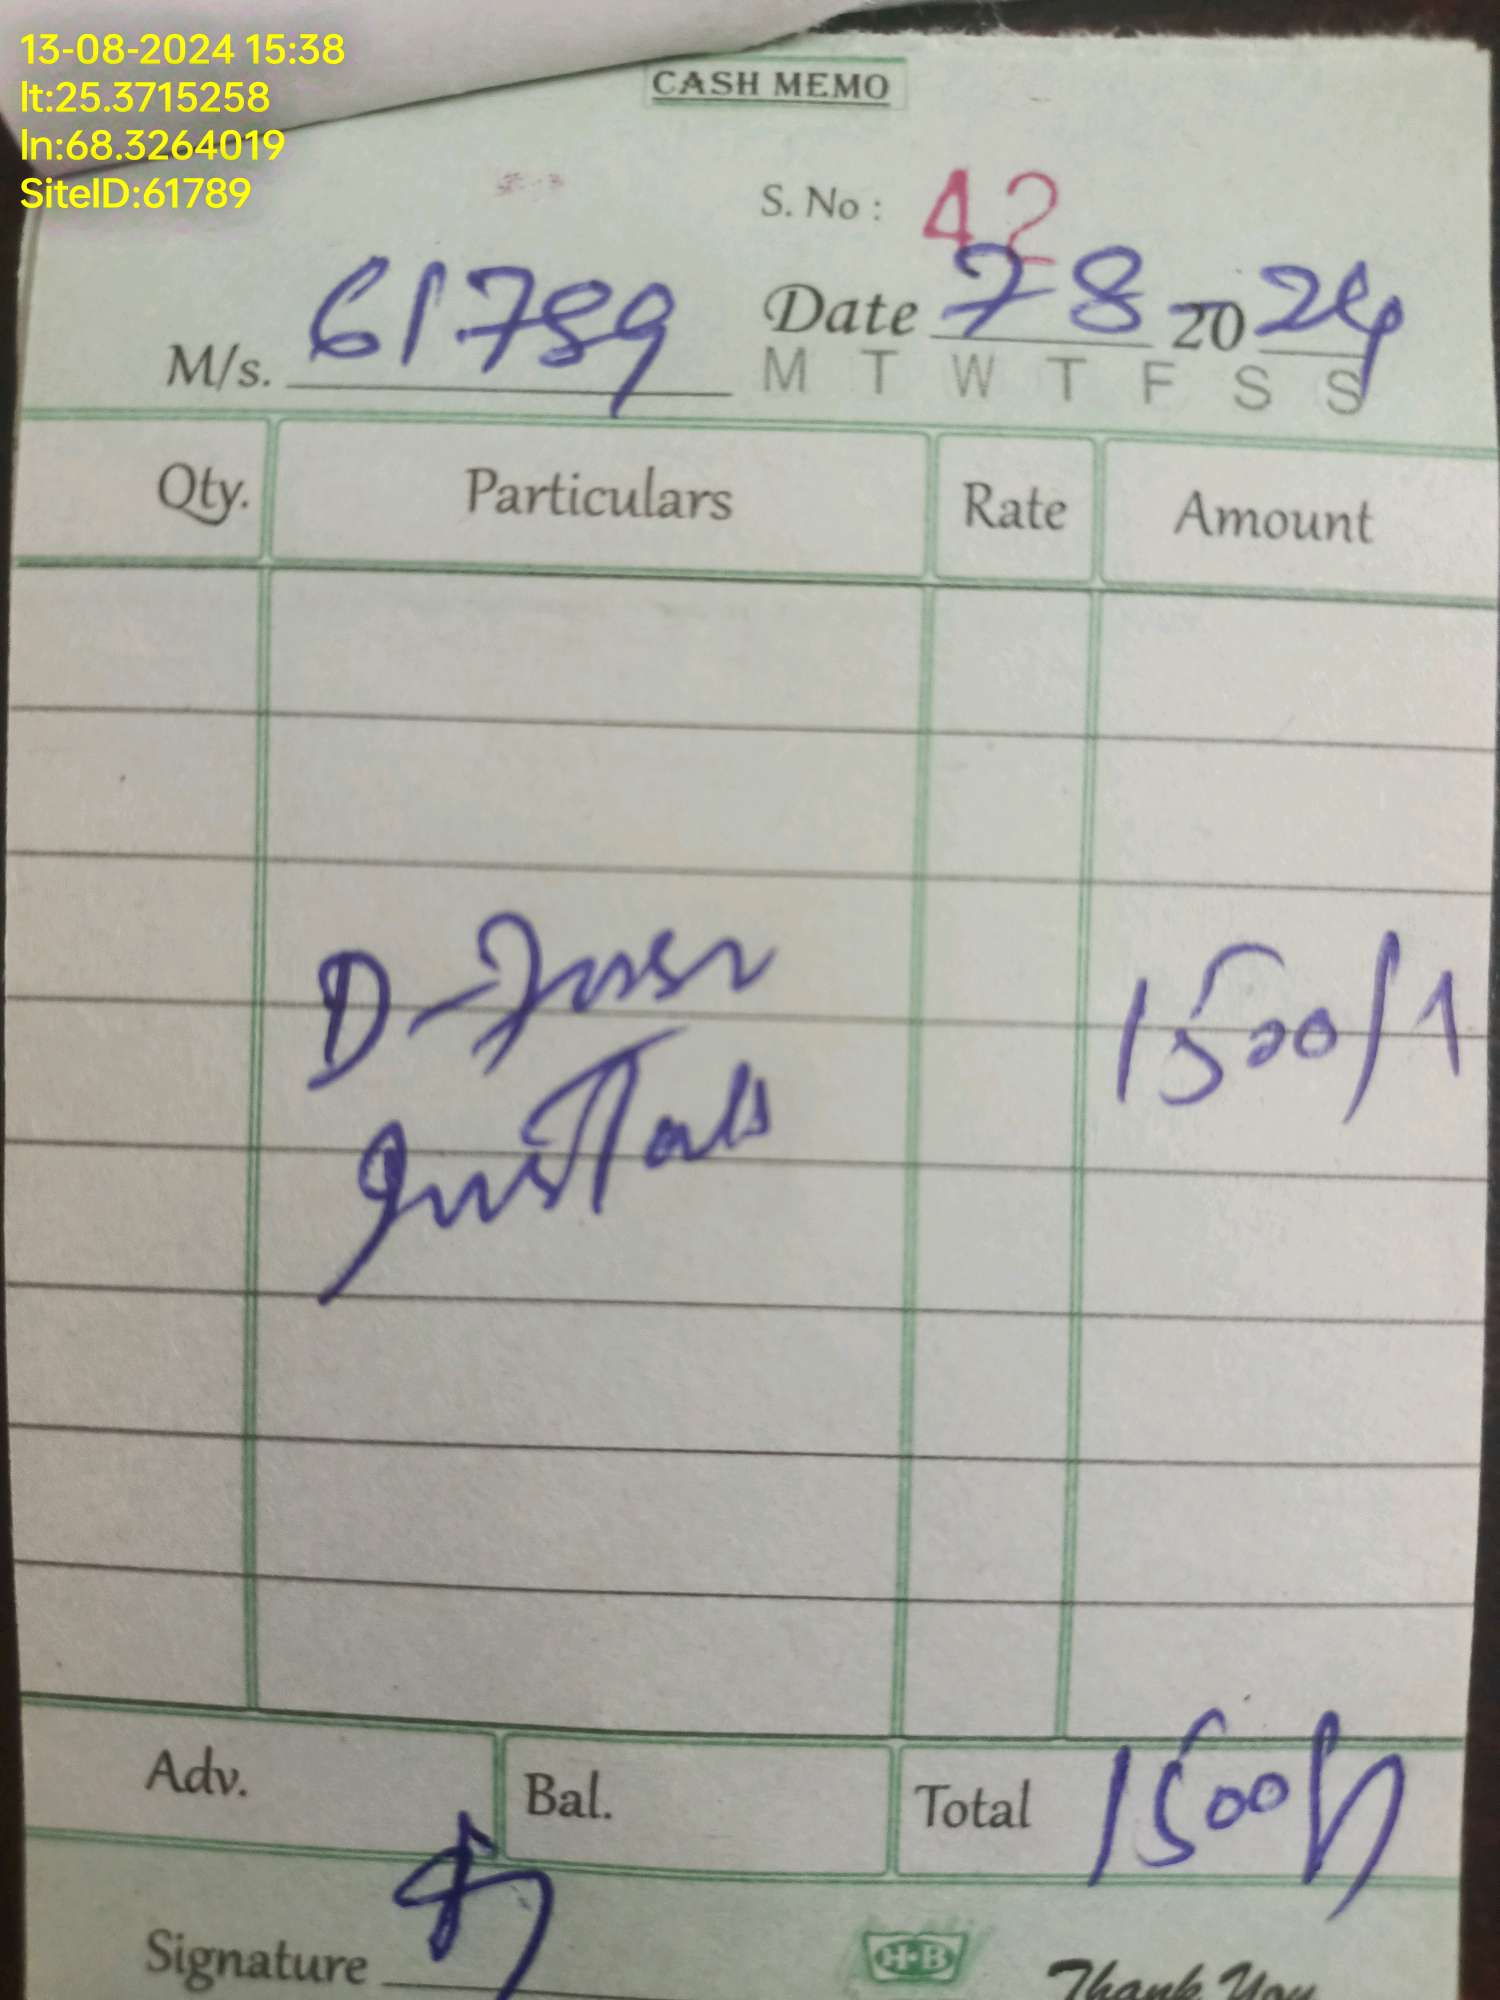 13-08-2024 15:38
lt:25.3715258
ln:68.3264019
SiteID:61789
CASH MEMO
S. No : 42
M/s. 61789 Date 7-8 2024
M T W T F S S
Qty. Particulars Rate Amount
D- 1500/
Adv. Bal. Total 1500/
Signature
H-B Thank You